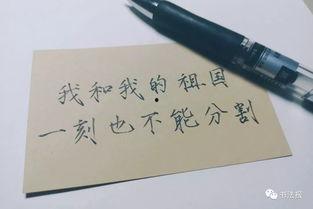 我和我的祖国
一刻也不能分割
书法报